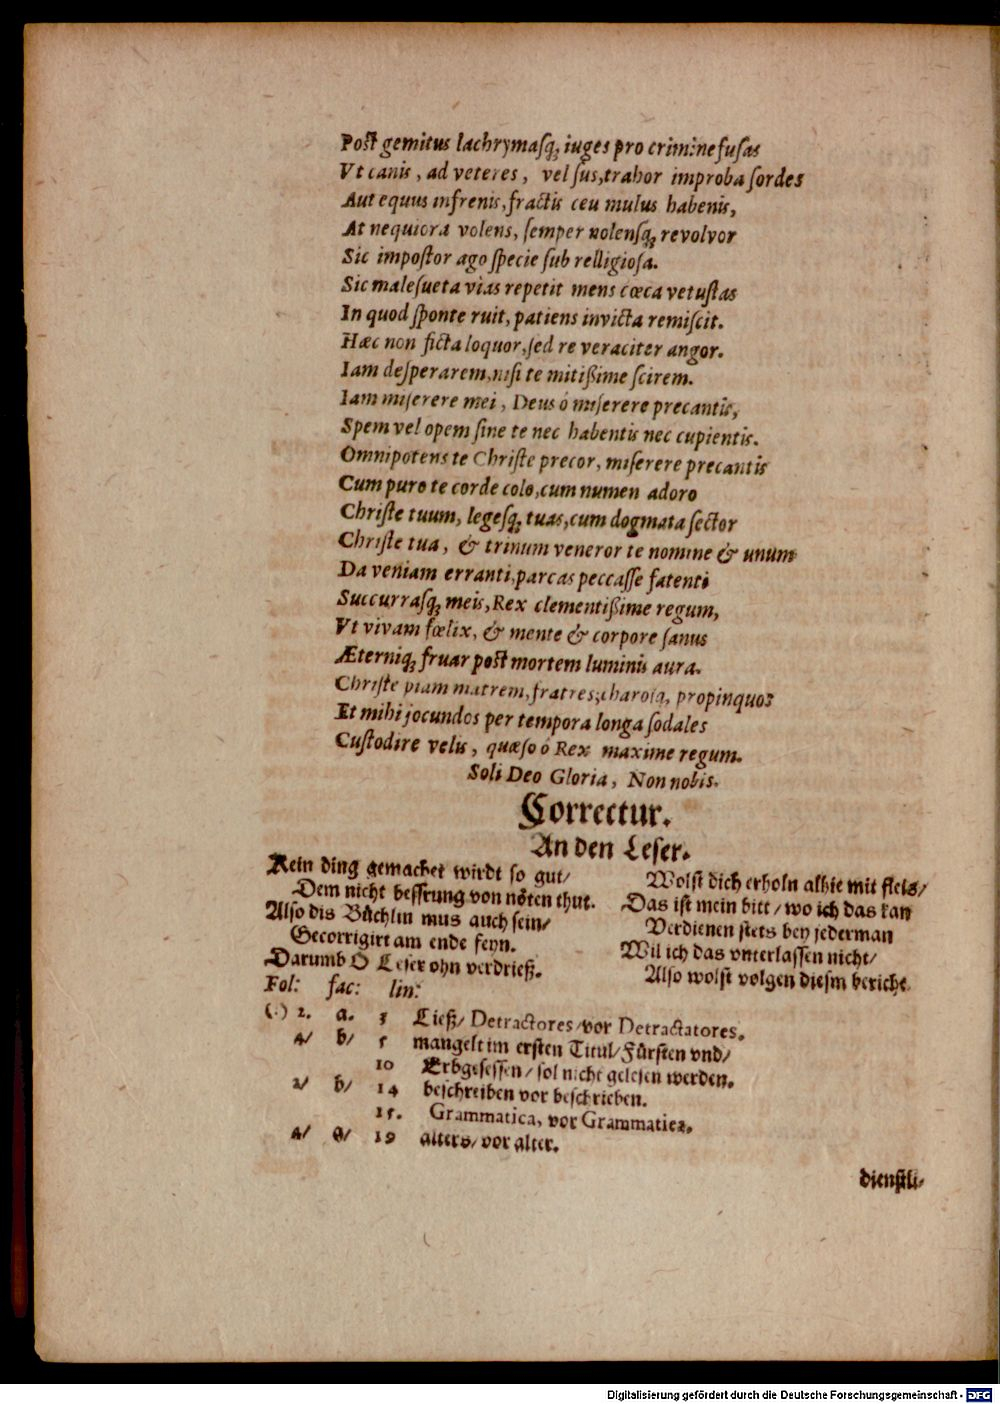 Poſt gemitus lachrymaſq́; iuges pro crimine fuſas
Vt canis, ad veteres, vel ſus, trahor improba ſordes
Aut equus infrenis, fractis ceu mulus habenis,
At nequiora volens, ſemper nolenſq́; revolvor
Sic impoſtor ago ſpecie ſub relligioſa.
Sic maleſueta vias repetit mens cœca vetuſtas
In quod ſponte ruit, patiens invicta remiſcit.
Hæc non ficta loquor, ſed re veraciter angor.
Iam deſperarem, niſi te mitißime ſcirem.
Iam miſerere mei, Deus ô miſerere precantis,
Spem vel opem ſine te nec habentis nec cupientis.
Omnipotens te Chriſte precor, miſerere precantis
Cum puro te corde colo, cum numen adoro
Chriſte tuum, legeſq́; tuas, cum dogmata ſector
Chriſte tua, & trinum veneror te nomine & unum
Da veniam erranti, parcas peccaſſe fatenti
Succurraſq́; meis, Rex clementißime regum,
Vt vivam fœlix, & mente & corpore ſanus
Æterniq́; fruar poſt mortem luminis aura.
Chriſte piam matrem, fratres, charoſq́; propinquos
Et mihi jocundos per tempora longa ſodales
Cuſtodire velis, quæſo ô Rex maxime regum.
Soli Deo Gloria, Non nobis.
Correctur.
An den Leſer.
Kein ding gemachet wirdt ſo gut/
Dem nicht beſſrung von nöten thut.
Alſo dis Büchlin mus auch ſein/
Gecorrigirt am ende feyn.
Darumb O Leſer ohn verdrieß.
Wolſt dich erholn alhie mit fleis/
Das iſt mein bitt/ wo ich das kan
Verdienen ſtets bey jederman
Wil ich das vnterlaſſen nicht/
Alſo wolſt volgen dieſm bericht
Fol: fac: lin:
(:) 2. a. 3 Ließ/ Detractores/ vor Detractatores.
4/ b/ 5 mangelt im erſten Titul/ Fürſten vnd/
10 Erbgeſeſſen/ ſol nicht geleſen werden.
2/ b/ 14 beſchreiben vor beſchrieben.
15. Grammatica, vor Grammatices.
4/ a/ 19 alters/ vor alter.
dienſtli⸗
Digitalisierung gefördert durch die Deutsche Forschungsgemeinschaft - DFG